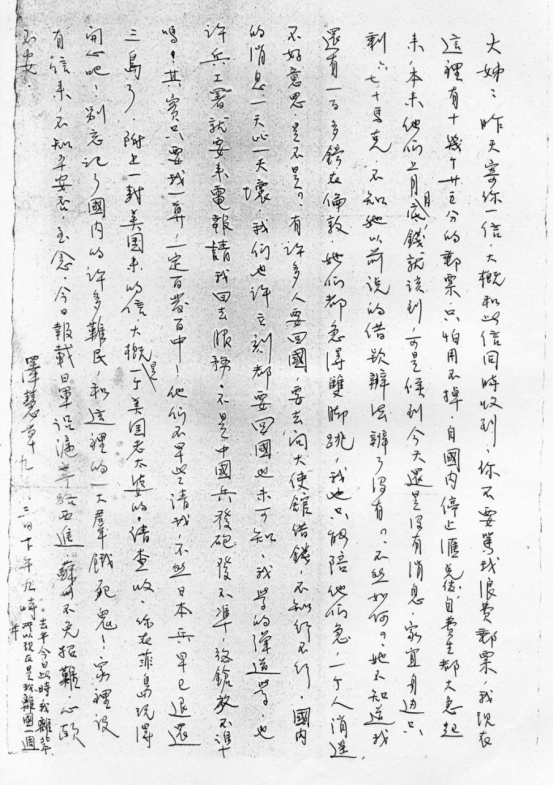 大姊：昨天寄你一信大概和此信同時收到，你不要罵我浪費郵票，我現在
這裡有十幾個廿五分的郵票，只怕用不掉。自國內停止匯兌後，自費生都大急起
來，本來他們上月月底錢就該到，可是候到今天還是沒有消息。家宜身边只
剩六七十馬克，不知她以前说的借款辦法辦了沒有？不然如何？她不知道我
還有一百多鎊在倫敦。她们都急得雙脚跳，我也只好陪他们急，一个人消遥
不好意思，是不是？有許多人要回國，要去向大使館借錢，不知行不行，國内
的消息一天比一天壞，我们也许立刻都要回國也未可知，我学的弹道学，也
许兵工署就要来電報請我回去服務，不是中國兵發砲發不準，放鎗放不準
嗎！其實只要我一算，一定百發百中！他们不早些請我，不然日本兵早已退還
三島了。附上一封美国来的信大概是一个美国老太婆的，請查收。你在菲島玩得
開心吧！别忘记了國内的许多難民，和这裡的一大羣餓死鬼！家裡没
有信来，不知平安否，至念。今日報載日軍從滬寧路西進，蘇州不免招難，心頗
不安。
澤慧草 九、三日下午九時
去年今日此時我離華，所以現在是我離國一週年